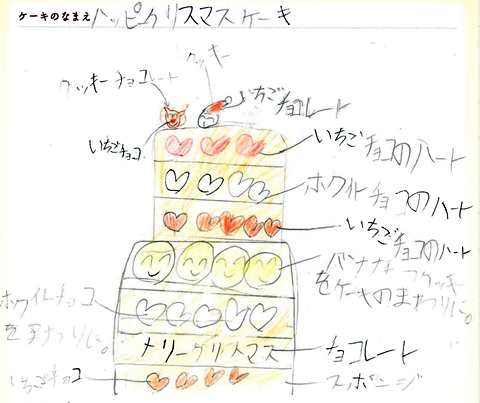 ケーキのなまえ ハッピークリスマスケーキ
クッキー
クッキーチョコレート
いちごチョコレート
いちごチョコ
いちごチョコのハート
ホワイトチョコのハート
いちごチョコのハート
バナナクッキー
をケーキのまわりに。
ホワイトチョコ
をまわりに。
メリークリスマス
チョコレート
いちごチョコ
スポンジ